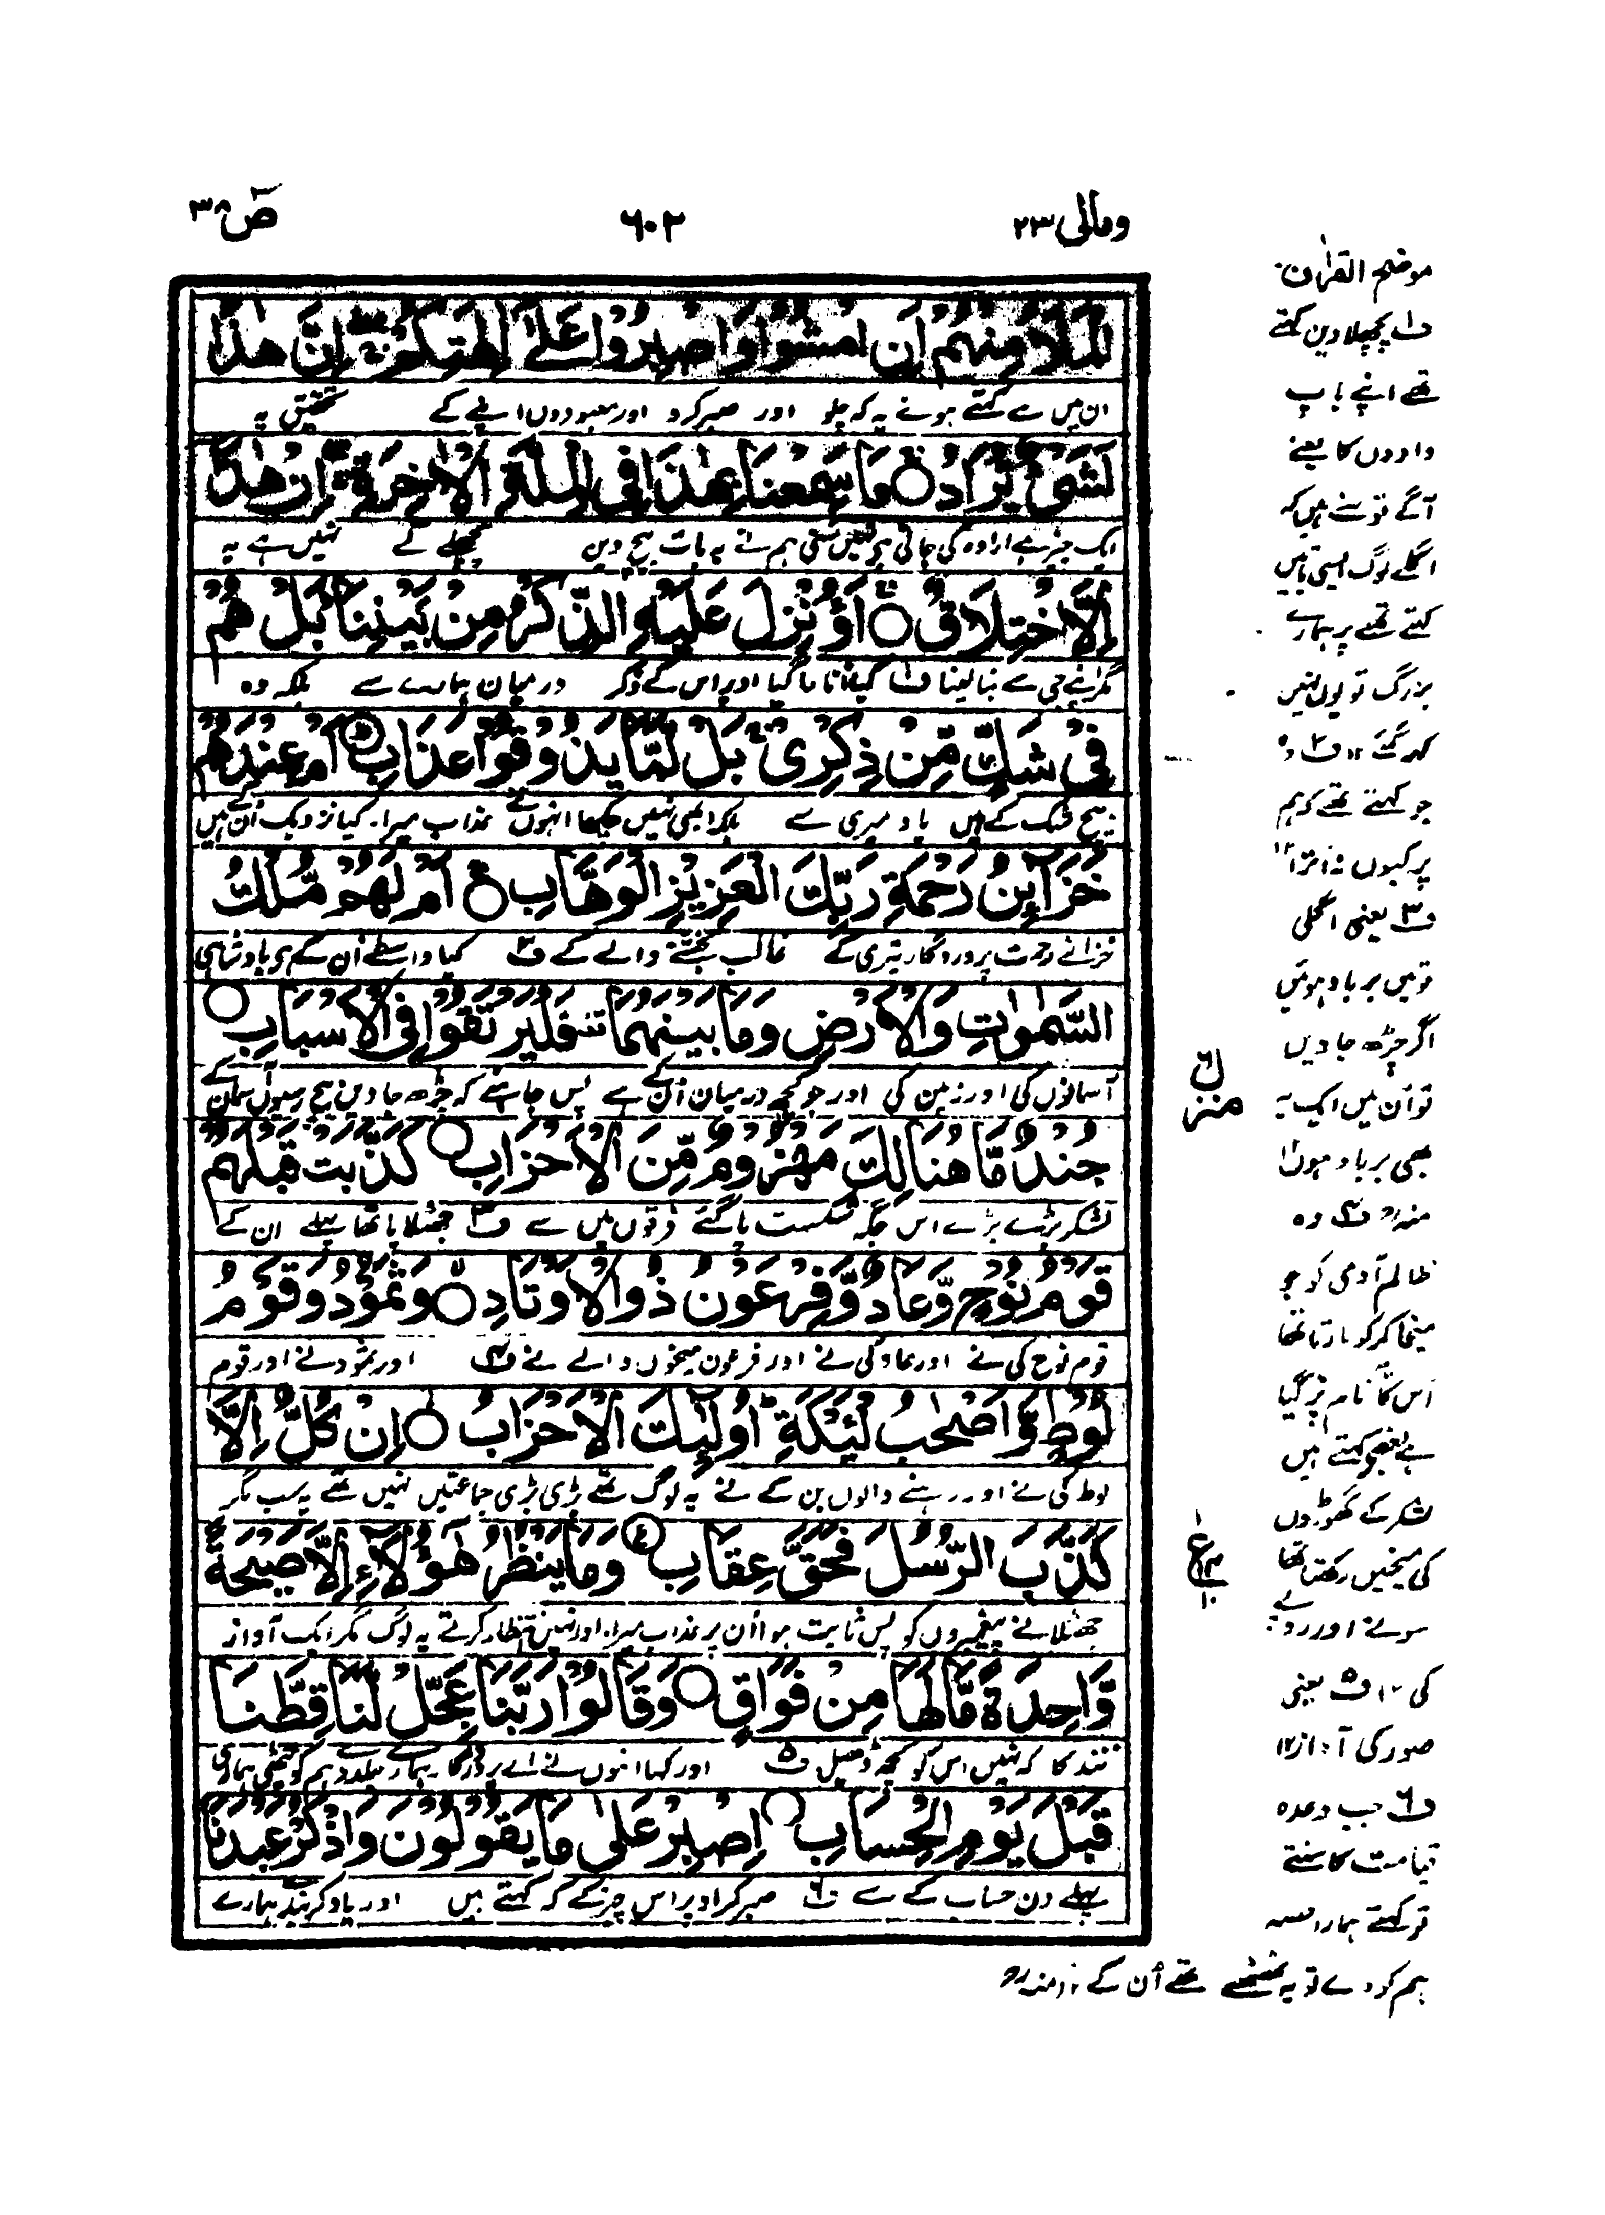 ومالی ۲۳
۶۰۲
صٓ ۳۸
الْمَلَاُ مِنْهُمْ اَنِ امْشُوْا وَاصْبِرُوْا عَلٰٓى اٰلِهَتِكُمْ ۖ اِنَّ هٰذَا
ان میں سے کہتے ہوئے یہ کہ چلو اور صبر کرو اوپر معبودوں اپنے کے تحقیق یہ
لَشَيْءٌ يُّرَادُ ○ مَا سَمِعْنَا بِهٰذَا فِى الْمِلَّةِ الْاٰخِرَةِ ۖ اِنْ هٰذَآ
ایک چیز ہے ارادہ کی جاتی ہے نہیں سنی ہم نے یہ بات بیچ دین پچھلے کے نہیں ہے یہ
اِلَّا اخْتِلَاقٌ ○ ءَاُنْزِلَ عَلَيْهِ الذِّكْرُ مِنْۢ بَيْنِنَا ۗ بَلْ هُمْ
مگر اپنے جی سے بنا لینا ف۱ کیا اتارا گیا اوپر اس کے ذکر درمیان ہمارے سے بلکہ وہ
فِيْ شَكٍّ مِّنْ ذِكْرِيْ ۚ بَلْ لَّمَّا يَذُوْقُوْا عَذَابِ ○ اَمْ عِنْدَهُمْ
بیچ شک کے ہیں یاد میری سے بلکہ ابھی نہیں چکھا انہوں نے عذاب میرا۔ کیا نزدیک اُن کے ہیں
خَزَآئِنُ رَحْمَةِ رَبِّكَ الْعَزِيْزِ الْوَهَّابِ ○ اَمْ لَهُمْ مُّلْكُ
خزانے رحمت پروردگار تیری کے غالب بخشنے والے کے ف۲ کیا واسطے اُن کے ہے بادشاہی
السَّمٰوٰتِ وَالْاَرْضِ وَمَا بَيْنَهُمَا ۖ فَلْيَرْتَقُوْا فِى الْاَسْبَابِ ○
آسمانوں کی اور زمین کی اور جو کچھ درمیان اُن کے ہے پس چاہئے کہ چڑھ جاویں بیچ رسیوں آسمان کے
جُنْدٌ مَّا هُنَالِكَ مَهْزُوْمٌ مِّنَ الْاَحْزَابِ ○ كَذَّبَتْ قَبْلَهُمْ
لشکر بڑے بڑے اس جگہ شکست پا گئے فرقوں میں سے ف۳ جھٹلایا تھا پہلے ان کے
قَوْمُ نُوْحٍ وَّعَادٌ وَّفِرْعَوْنُ ذُو الْاَوْتَادِ ○ وَثَمُوْدُ وَقَوْمُ
قوم نوح کی نے اور عاد کی نے اور فرعون میخوں والے نے ف۴ اور ثمود نے اور قوم
لُوْطٍ وَّاَصْحٰبُ لْئَيْكَةِ ۗ اُولٰٓئِكَ الْاَحْزَابُ ○ اِنْ كُلٌّ اِلَّا
لوط کی نے اور رہنے والوں بن کے نے یہ لوگ تھے بڑی بڑی جماعتیں نہیں تھے یہ سب مگر
كَذَّبَ الرُّسُلَ فَحَقَّ عِقَابِ ○ وَمَا يَنْظُرُ هٰٓؤُلَآءِ اِلَّا صَيْحَةً
جھٹلاتے پیغمبروں کو پس ثابت ہوا اُن پر عذاب میرا۔ اور نہیں انتظار کرتے یہ لوگ مگر ایک آواز
وَّاحِدَةً مَّا لَهَا مِنْ فَوَاقٍ ○ وَقَالُوْا رَبَّنَا عَجِّلْ لَّنَا قِطَّنَا
تند کا کہ نہیں اس کو کچھ ڈھیل ف۵ اور کہا انہوں نے اے پروردگار ہمارے جلد دے ہم کو چٹھی ہماری
قَبْلَ يَوْمِ الْحِسَابِ ○ اِصْبِرْ عَلٰى مَا يَقُوْلُوْنَ وَاذْكُرْ عَبْدَنَا
پہلے دن حساب کے سے ف۶ صبر کر اوپر اس چیز کے کہ کہتے ہیں اور یاد کر بندے ہمارے
موضح القرآن
ف۱ پچھلا دین کہتے
تھے اپنے باپ
دادوں کا یعنے
آگے تو سنے ہیں کہ
اگلے لوگ ایسی باتیں
کہتے تھے پر ہمارے
بزرگ تو یوں نہیں
کہہ گئے ۱۲ ف۲ وہ
جو کہتے تھے کہ ہم
پر کیوں نہ اترا ۱۲
ف۳ یعنی اگلی
قومیں برباد ہوئیں
اگر چڑھ جاویں
تو اُن میں ایک یہ
بھی برباد ہوں ۱۲
منہ ف۴ وہ
ظالم آدمی کو جو
میخا کر کر مارتا تھا
اس کا نام پڑ گیا
ہے بعضے کہتے ہیں
لشکر کے گھوڑوں
کی میخیں رکھتا تھا
سونے اور روپے
کی ۱۲ ف۵ یعنی
صور کی آواز ۱۲
ف۶ جب وعدہ
قیامت کا سنتے
تو کہتے ہمارا حصہ
ہم کو دے تو یہ ٹھٹھے تھے اُن کے ۱۲ منہ
منزل ۶
ع
۱۰